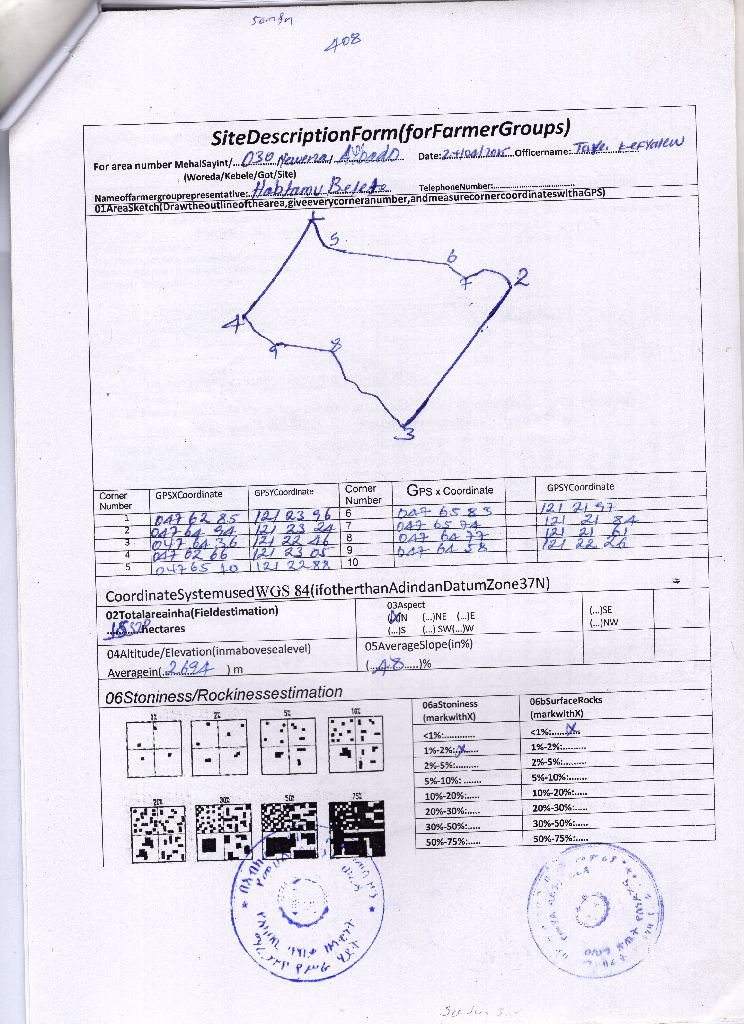 408
SiteDescriptionForm(forFarmerGroups)
For area number MehalSayint/... 030 Date: Officername:
(Woreda/Kebele/Got/Site)
Nameoffarmergrouprepresentative: Habtamu Belete TelephoneNumber:
01AreaSketch(Drawtheoutlineofthearea,giveeverycorneranumber,andmeasurecornercoordinateswithaGPS)
1
5
6
7
2
4
9
8
3
Corner Number GPSXCoordinate GPSYCoordinate Corner Number GPS x Coordinate GPSYCoordinate
1 047 62 85 121 23 96 6 047 65 83 121 21 97
2 047 64 94 121 23 24 7 047 65 74 121 21 84
3 047 64 36 121 22 46 8 047 64 77 121 21 61
4 047 62 66 121 23 05 9 047 64 58 121 22 26
5 047 65 10 121 22 88 10
CoordinateSystemusedWGS 84(ifotherthanAdindanDatumZone37N)
02Totalareainha(Fieldestimation)
hectares
03Aspect
(X)N (...)NE (...)E (...)SE
(...)S (...) SW(...)W (...)NW
04Altitude/Elevation(inmabovesealevel)
Averagein(.2694.) m
05AverageSlope(in%)
(...48......)%
06Stoniness/Rockinessestimation
1% 2% 5% 10%
20% 30% 50% 75%
06aStoniness (markwithX) 06bSurfaceRocks (markwithX)
<1%:............ <1%:......X
1%-2%:.X...... 1%-2%:.........
2%-5%:......... 2%-5%:.........
5%-10%: ....... 5%-10%:.......
10%-20%:..... 10%-20%:.....
20%-30%:..... 20%-30%:.....
30%-50%:..... 30%-50%:.....
50%-75%:..... 50%-75%:.....